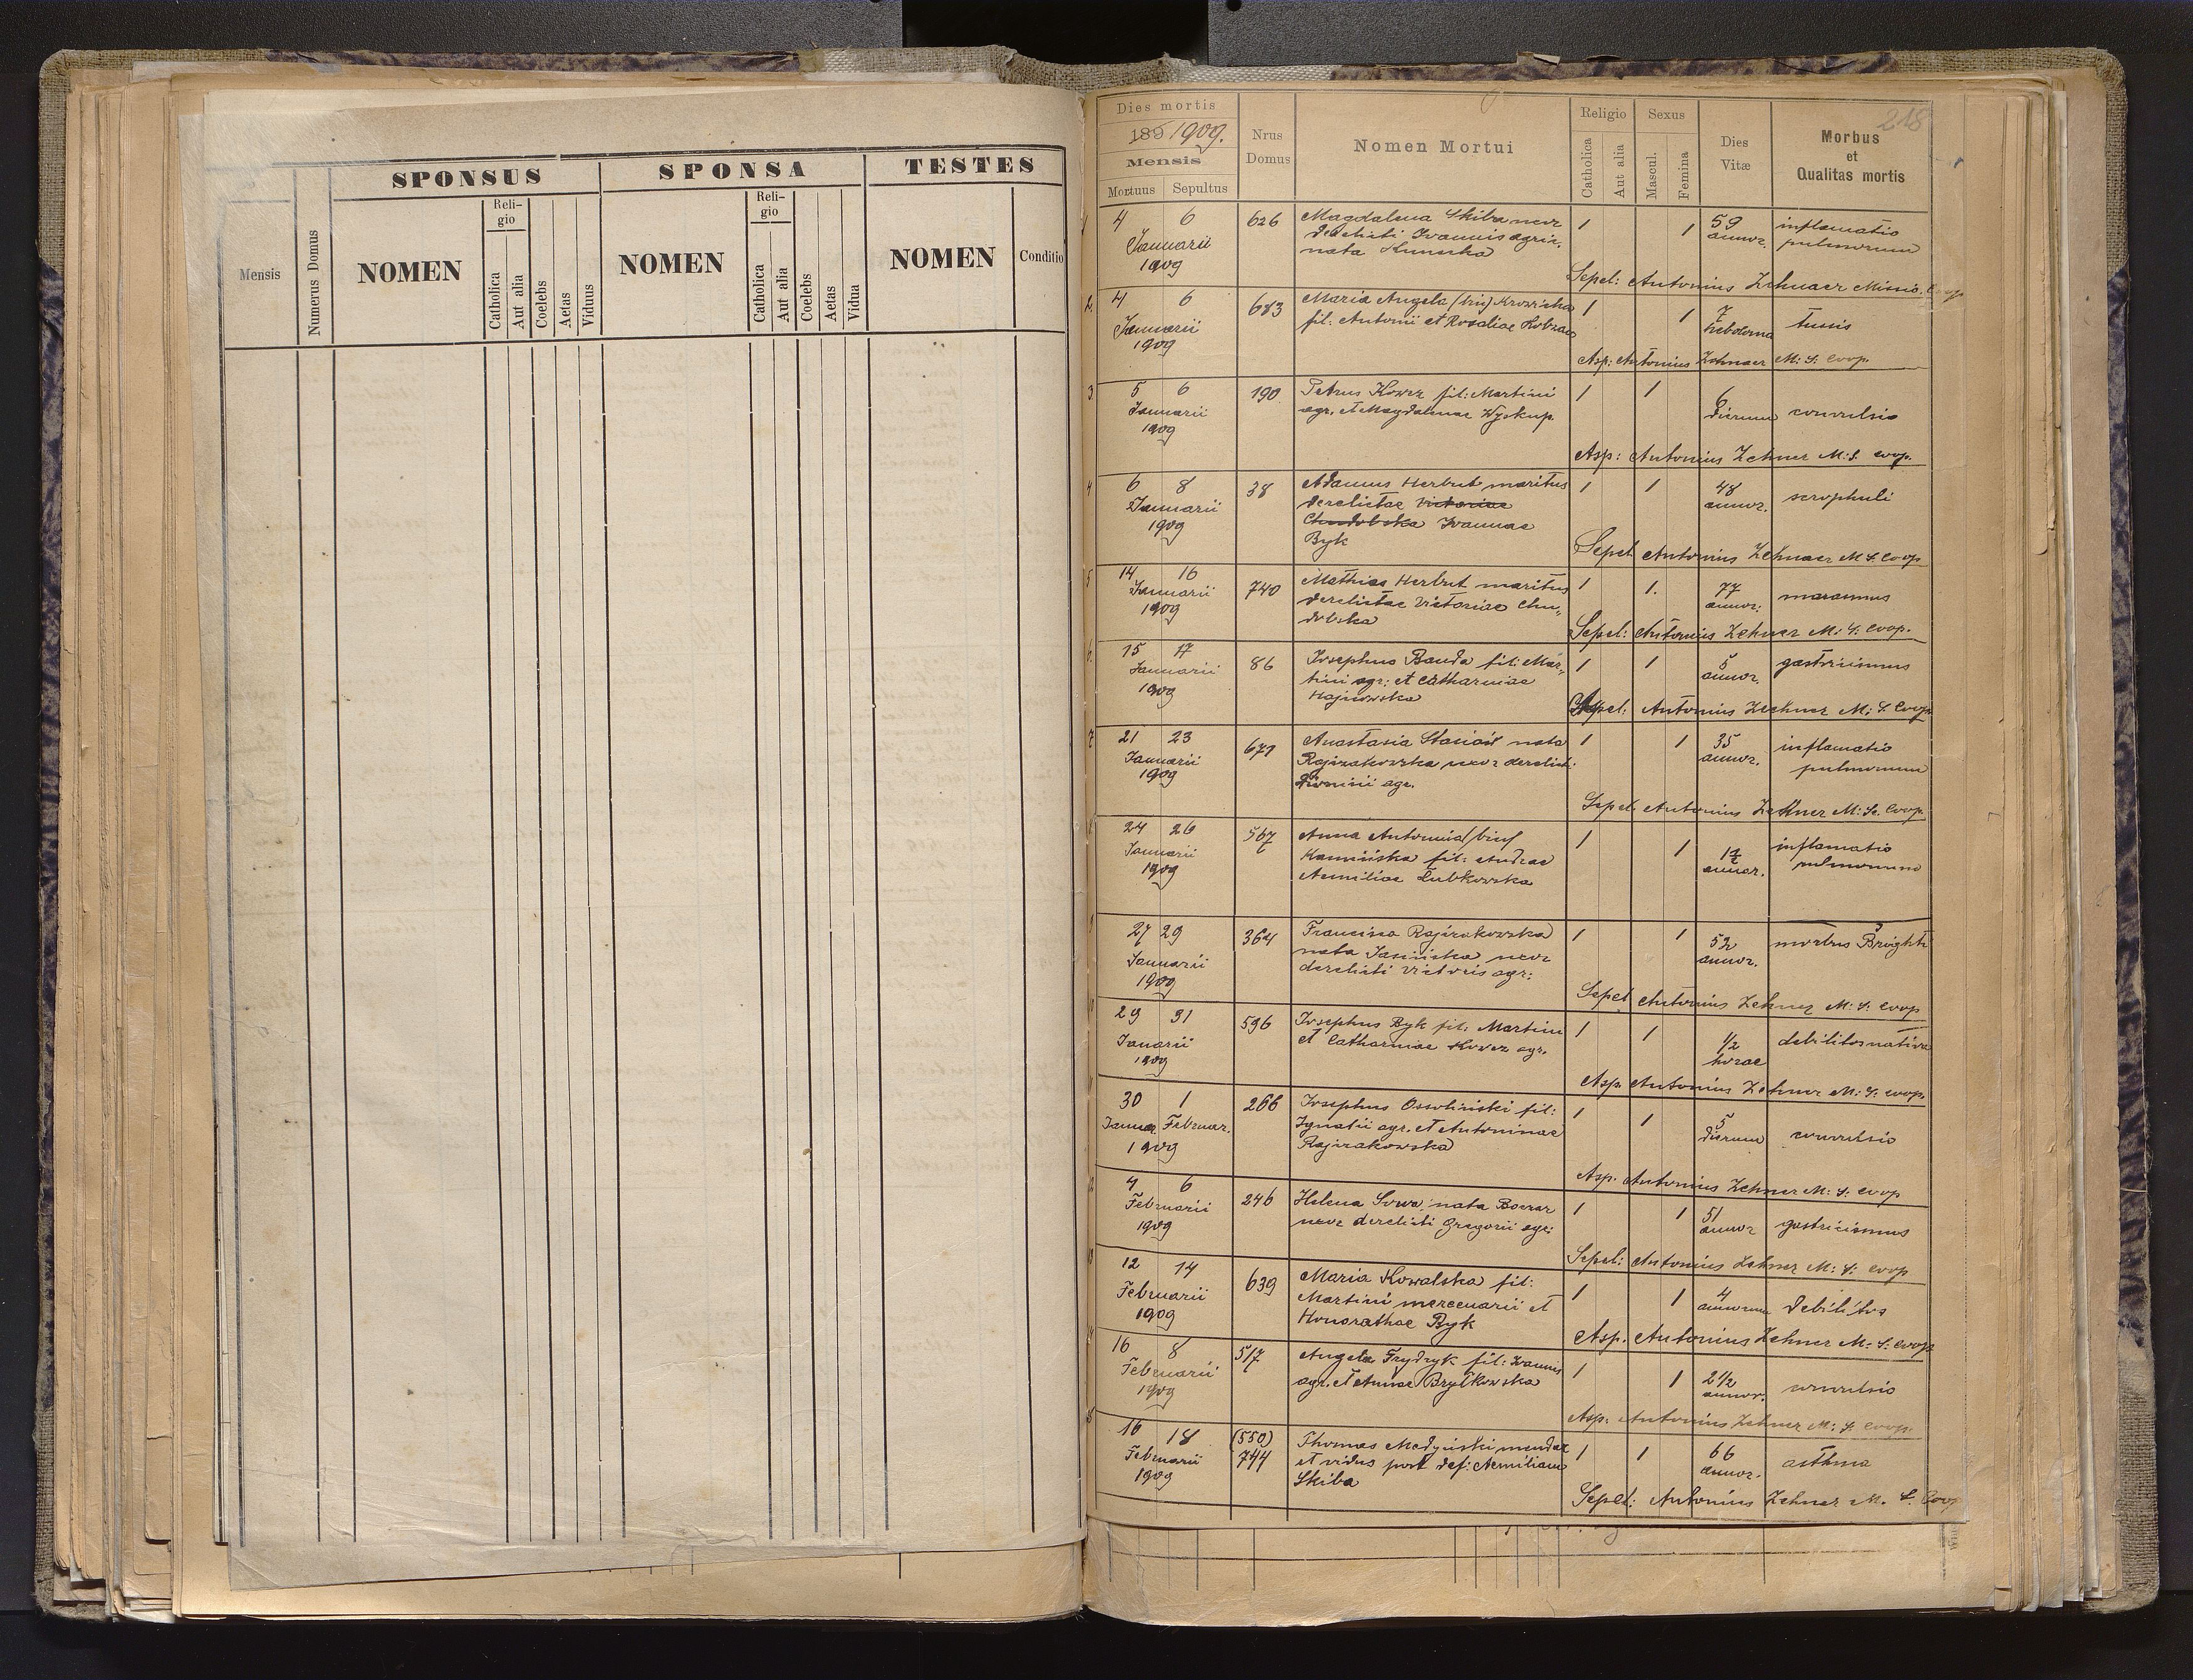 SPONSUS
SPONSA
TESTES
Mensis
Numerus Domus
NOMEN
Reli-
gio
Catholica
Aut alia
Coelebs
Aetas
Viduus
NOMEN
Reli-
gio
Catholica
Aut alia
Coelebs
Aetas
Vidua
NOMEN
Conditio
218
Dies mortis
189 1909.
Mensis
Mortuus Sepultus
Nrus
Domus
Nomen Mortui
Religio
Catholica
Aut alia
Sexus
Mascul.
Femina
Dies
Vitæ
Morbus
et
Qualitas mortis
1 4 6 626 Magdalena Skiba uxor 1 1 59 inflamatio
Januarii derelicti Ioannis agric. annor. pulmonum
1909 nata
Sepel: Antonius Zehner Missio.
2. 4 6 683 Maria Angela (bin) 1 1 7 tussis
Januarii fil: Antonii et Rosaliae hebdoma
1909
Asp: Antonius Zehner M: S: Coop.
3 5 6 190 Petrus Kowcz fil: Martini 1 1 6 convulsio
Januarii agr. et Magdalenae Wyskup. dierum
1909
Asp: Antonius Zehner M: S. coop.
4 6 8 38 Adamus Herbut maritus 1 1 48 scrophuli
Januarii derelictae Victoriae annor.
1909 Chudobska Ioannae
Byk
Sepel Antonius Zehner M S. Coop
5 14 16 740 Mathias Herbut maritus 1 1. 77 marasmus
Januarii derelictae Victoriae Chu„ annor:
1909 dobska
Sepel: Antonius Zehner M: S: Coop.
6. 15 17 86 Josephus Banda fil: Mar„ 1 1 5 gastricismus
Januarii tini agr: et Catharinae annor.
1909
Sepel: Antonius Zehner M: S. Coop.
7 21 23 671 Anastasia Stasiów nata 1 1 35 inflamatio
Januarii Rajzakowska uxor derelicti annor. pulmonum
1909 Dionisii agr.
Sepel. Antonius Zehner M: S. Coop.
24 26 567 Anna Antonina (bin) 1 1 inflamatio
Januarii Kamińska fil: Andreae annor. pulmonum
1909 Aemiliae Łubkowska
27 29 364 Francisca Rajzakowska 1 1 52 morbus Brighti
Januarii nata Jasińska uxor annor.
1909 derelicti Victoris agr:
Sepel Antonius Zehner M: S: Coop
29 31 596 Josephus Byk fil: Martini 1 1 1/2 debilitas nativa
Januarii et Catharinae Kowcz agr. horae
1909
Asp. Antonius Zehner M: S: coop.
30 1 266 Josephus Ossoliński fil: 1 1 5 convulsio
Januar. Februar. Ignatii agr. et Antoninae dierum
1909 Rajzakowska
Asp. Antonius Zehner M: S: coop
4 6 246 Helena Sowa, nata 1 1 51 gastricismus
Februarii uxor derelicti Gregorii agr: annor
1909
Sepel: Antonius Zehner M: S: coop
12 14 639 Maria Kowalska fil: 1 1 4 debilitas
Februarii Martini mercenarii et annorum
1909 Honorathae Byk
Asp. Antonius Zehner M: S: Coop
16 8 517 Angela Frydryk fil: Ioannis 1 1 2 1/2 convulsio
Februarii agr. et Annae Bryłkowska annor.
1909
Asp: Antonius Zehner M: S. Coop.
16 18 (550) Thomas Medyński mendax 1 1 66 asthma
Februarii 744 et vidus post def: Aemiliam annor.
1909 Skiba
Sepel: Antonius Zehner M. S. Coop